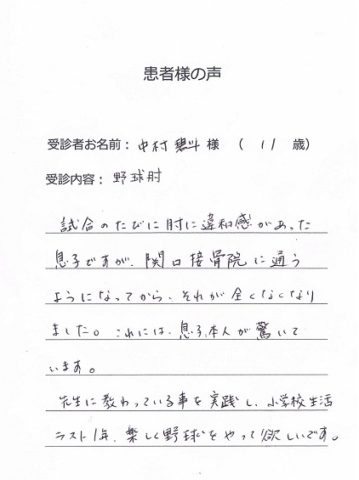 患者様の声
受診者お名前：中村 斗 様 （ 11 歳）
受診内容： 野球肘
試合のたびに肘に違和感があった
息子ですが、関口接骨院に通う
ようになってから、それが全くなくなり
ました。これには、息子本人が驚いて
います。
先生に教わっている事を実践し、小学校生活
ラスト1年、楽しく野球をやって欲しいです。